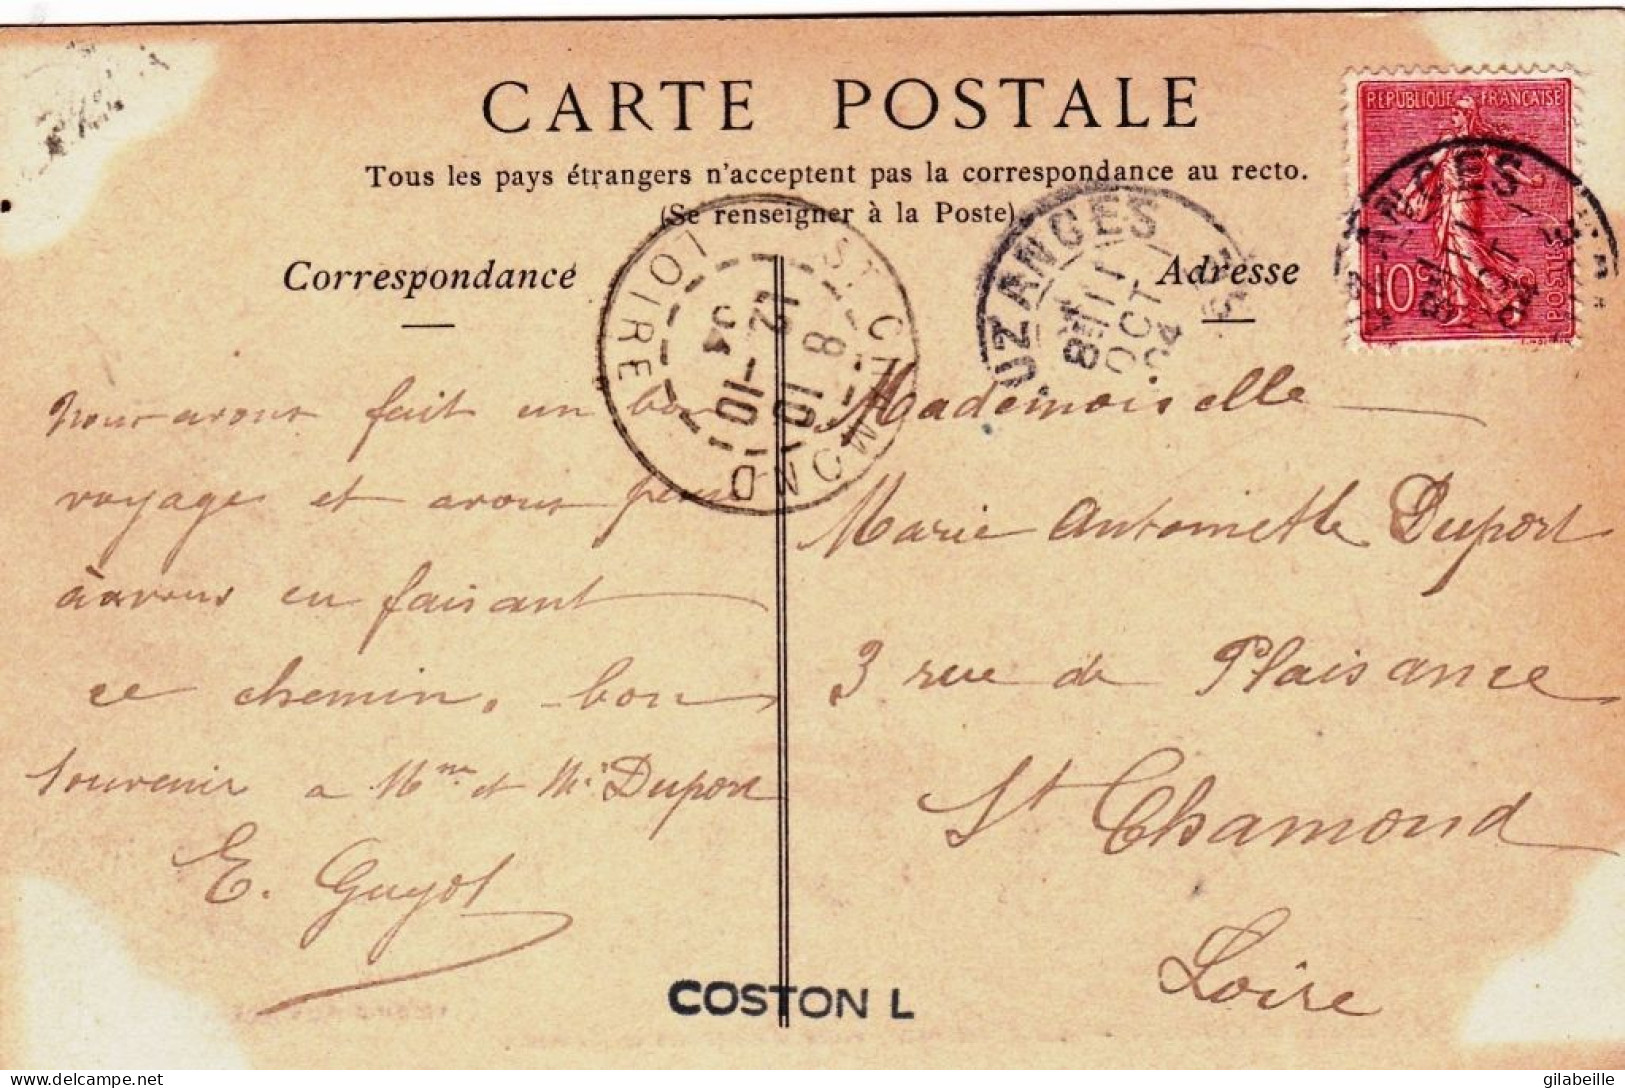 CARTE POSTALE
Tous les pays étrangers n'acceptent pas la correspondance au recto.
(Se renseigner à la Poste)
REPUBLIQUE FRANÇAISE
10c
POSTES
UZANCES
8 11 OCT 04
ST CHAMOND
LOIRE
12-10
04
8 10
Correspondance
Nous avons fait un bon
voyage et avons
à vous en faisant
ce chemin. bon
souvenir a Mme et Mr Duport
E. Guyot
Adresse
Mademoiselle
Marie Antoinette Duport
3 rue de Plaisance
St Chamond
Loire
COSTON L
delcampe.net
gilabeille